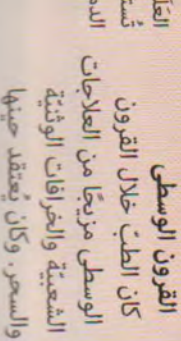 القرون الوسطى
كان الطبّ خلال القرون
الوسطى مزيجًا من العلاجات
الشعبيّة والخرافات الوثنيّة
والسحر. وكان يُعتقد حينها